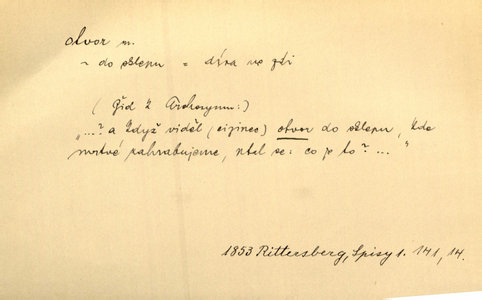 otvor m.
~ do sklepu = díra ve zdi
(Žid k Archonymu:)
„...? a když viděl (cizinec) otvor do sklepu, kde
mrtvé zahrabujeme, ptal se: co je to? ..."
1853 Rittersberg, Spisy 1. 141, 14.